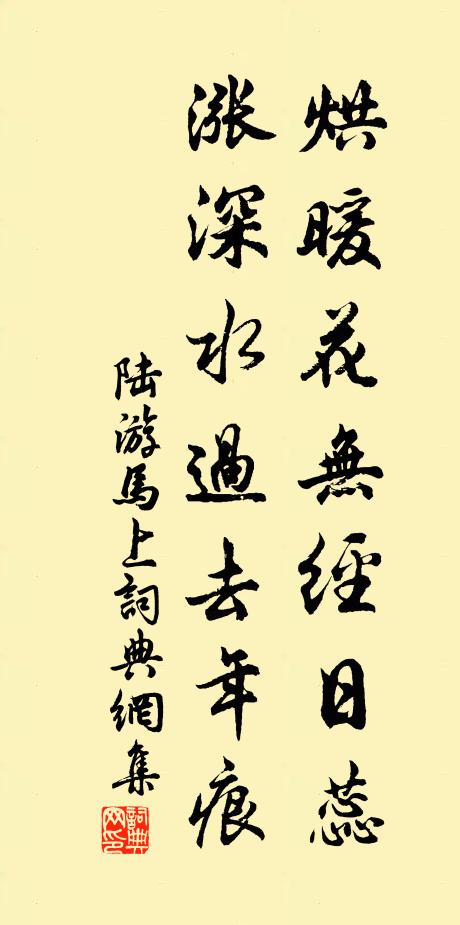 烘暖花無經日蕊
漲深水過去年痕
陸游馬上詞典網集
詞典网印